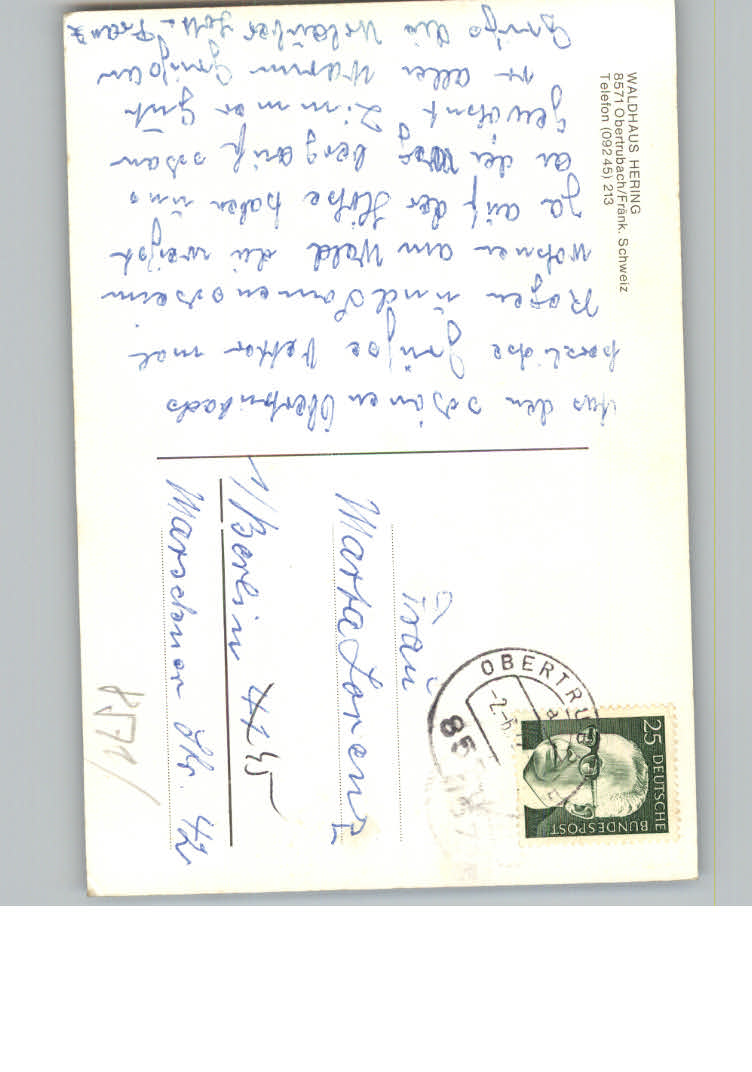 WALDHAUS HERING
8571 Obertrubach/Fränk. Schweiz
Telefon (092 45) 213
Aus den schönen Obertrubach
herzliche Grüße Wetter mal
Regen und Sonnenschein
wohnen am Wald du weist
ja auf der Höhe haben uns
an den Weg bergauf schon
gewöhnt Zimmer Gut
vor allem Warm
Grüße die Urlauber
Franz
Frau
Marta Lorenz
1/Berlin 47 45
Marschner Str. 42
8571/
25 DEUTSCHE
BUNDESPOST
OBERTRUB
-2.-6.
a
857